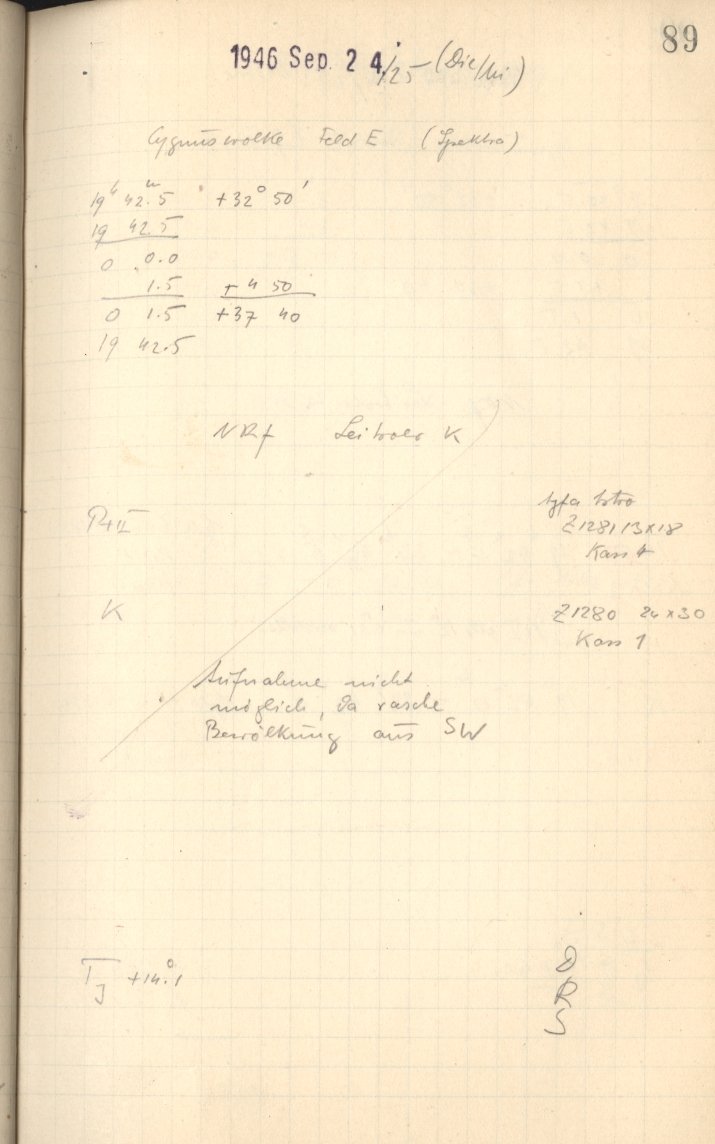 89
1946 Sep. 24./25 (Die/Mi)
Cygnuswolke Feld E (Spektra)
19h 42m.5 +32° 50'
19 42.5
0 0.0
1.5 + 4 50
0 1.5 +37 40
19 42.5
NRf Leitrohr K
P+II
Agfa Astro
Z1281 13x18
Kass 4
K
Z1280 24x30
Kass 1
Aufnahme nicht
möglich, da rasche
Bewölkung aus SW
TJ +14°.1
D
R
S